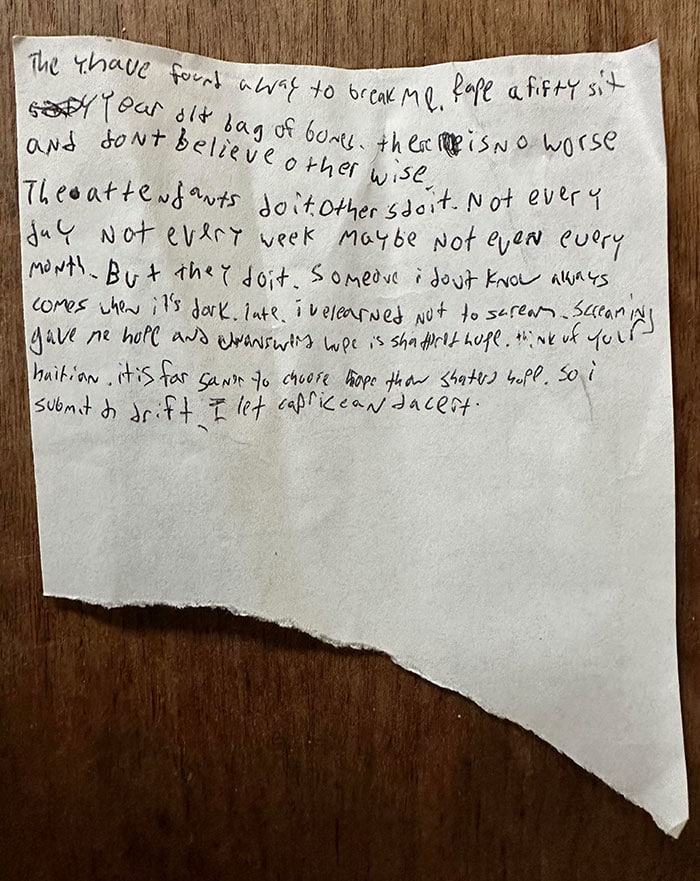 The y have found a way to break me. Rape a fifty sit
year old bag of bones. there is no worse
and dont believe other wise.
The attendants do it. Others do it. Not every
day not every week maybe not even every
month. But they do it. Someone i dont know always
comes when it's dark. late. i ve learned not to scream. Screaming
gave me hope and unanswered hope is shattered hope. think of your
haitian. it is far saner to choose hope than shaterd hope. So i
submit & drift. I let